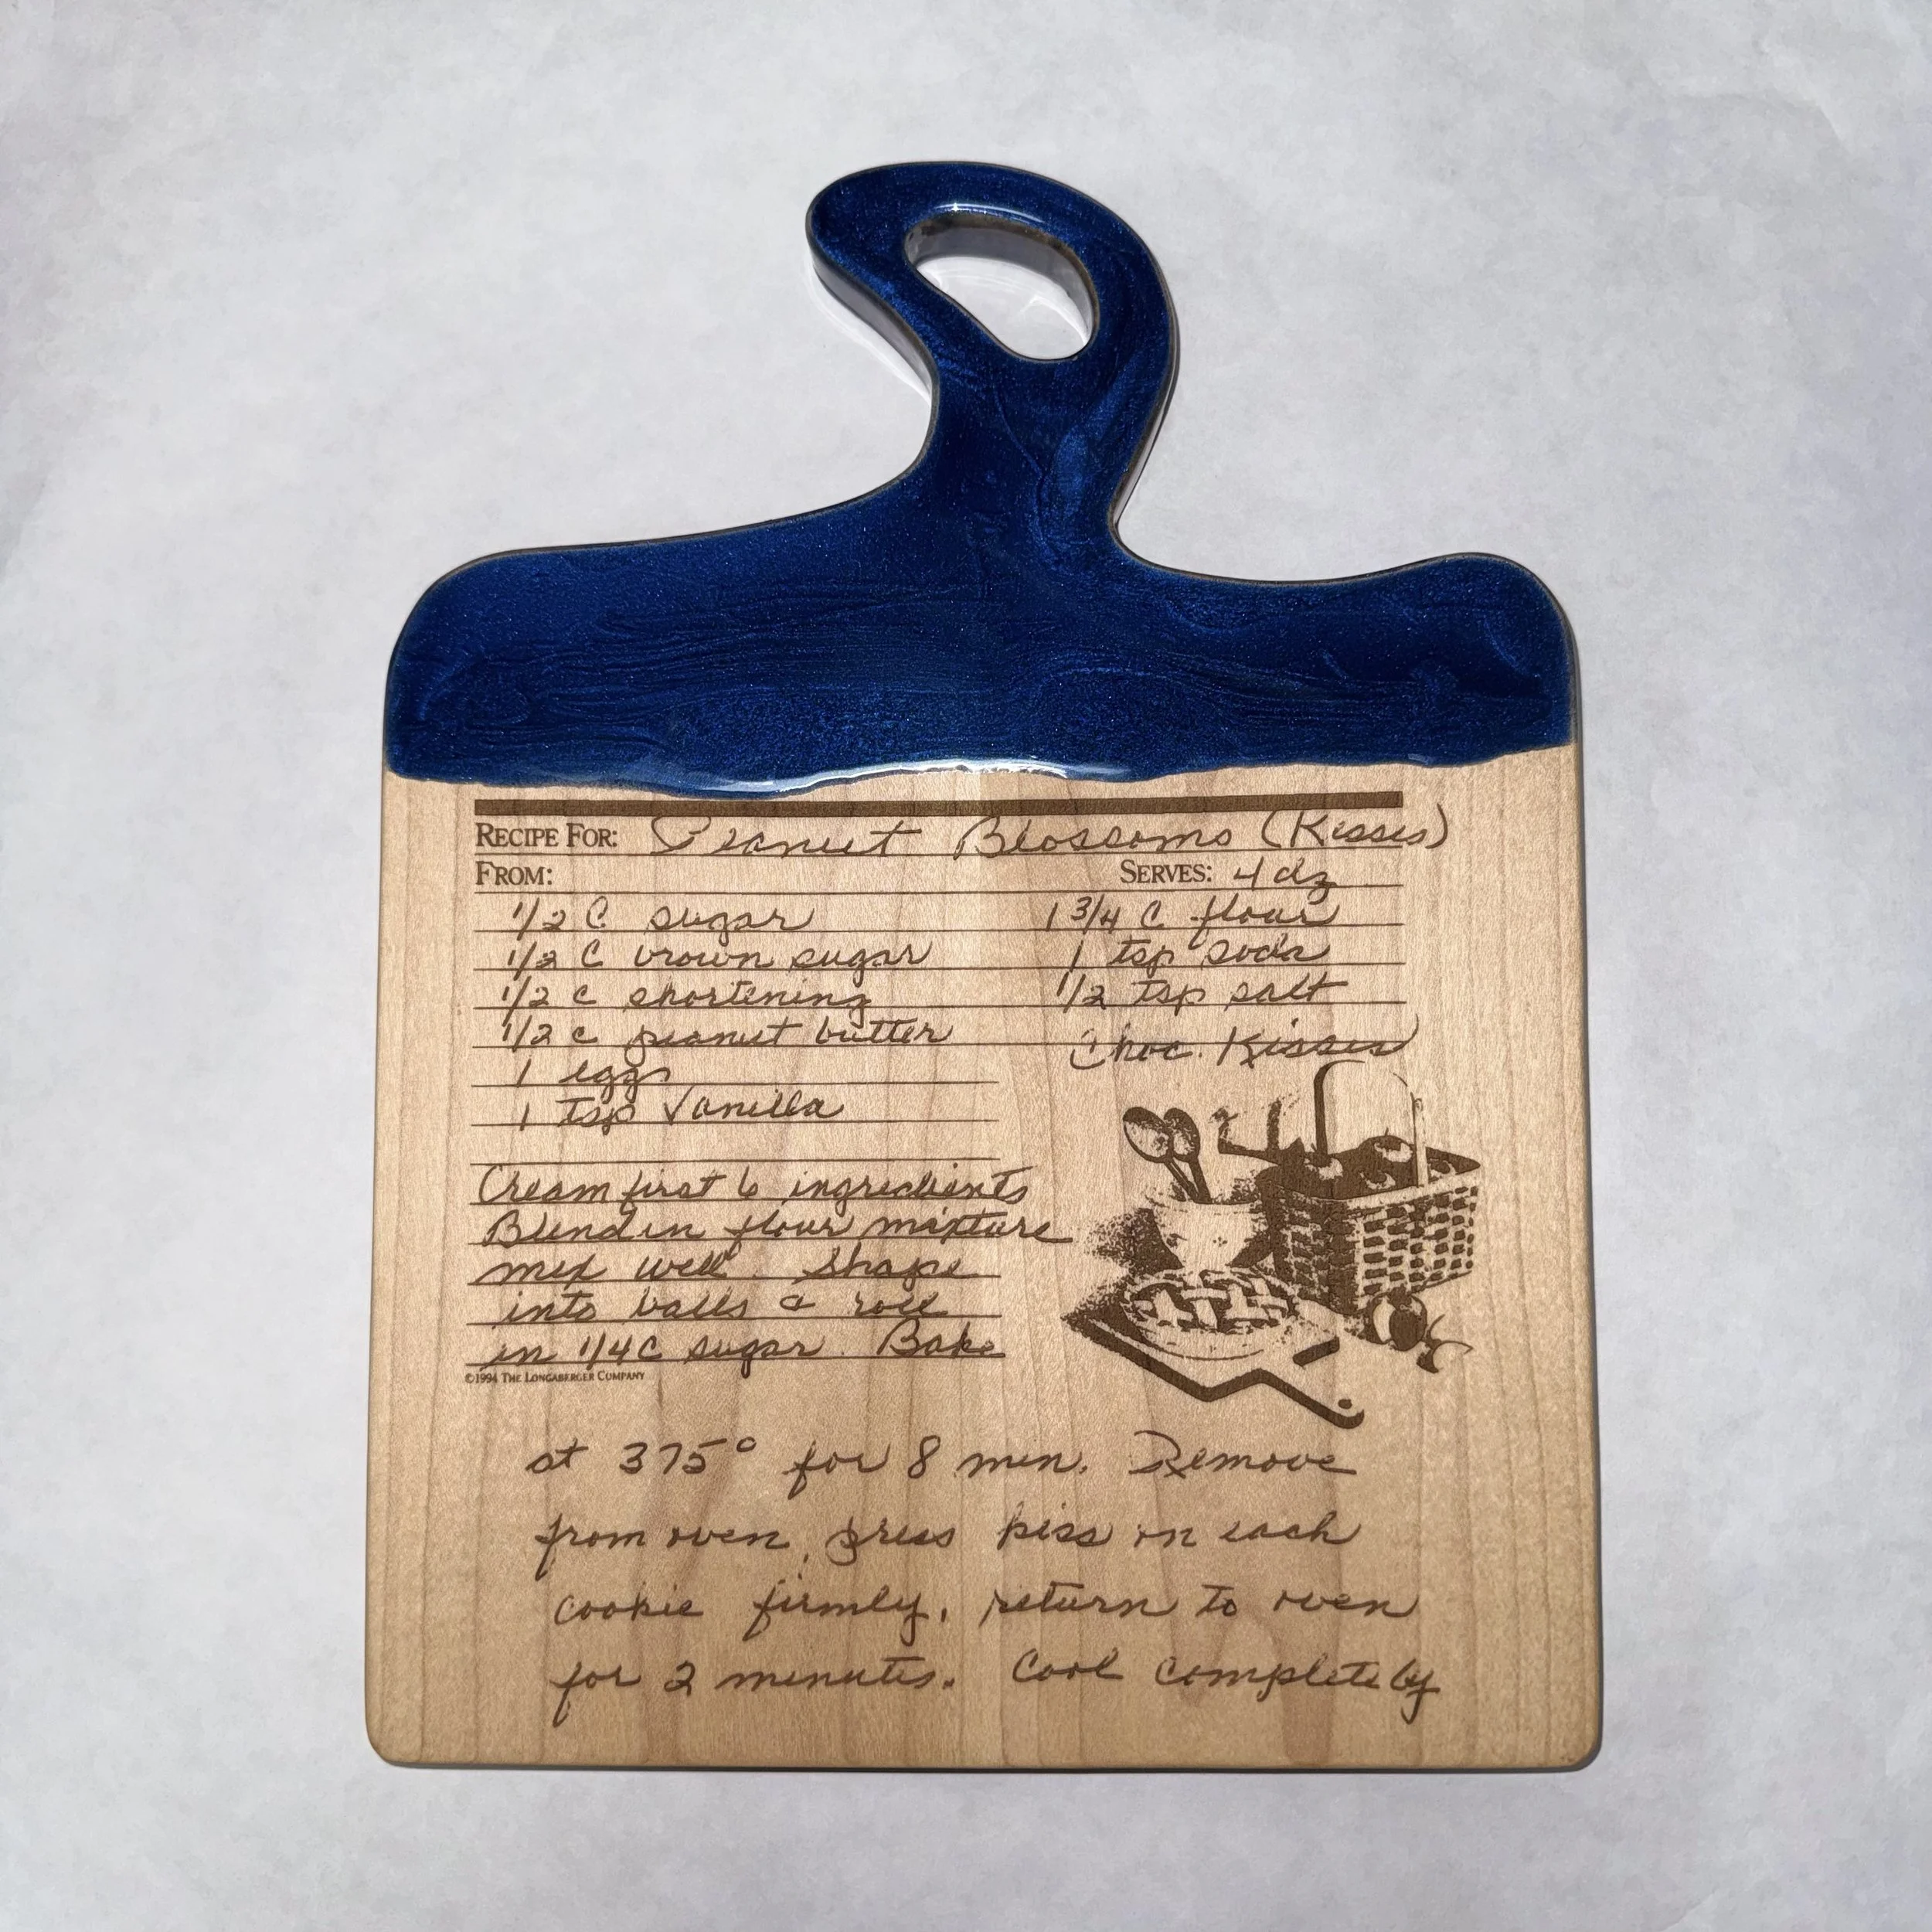 RECIPE FOR: Peanut Blossoms (Kisses)
FROM: SERVES: 4 dz
1/2 C sugar 1 3/4 C flour
1/2 C brown sugar 1 tsp soda
1/2 c shortening 1/2 tsp salt
1/2 c peanut butter Choc. Kisses
1 egg
1 tsp Vanilla
Cream first 6 ingredients
Blend in flour mixture
mix well. Shape
into balls & roll
in 1/4 C sugar. Bake
©1994 THE LONGABERGER COMPANY
at 375° for 8 min. Remove
from oven, press kiss on each
cookie firmly, return to oven
for 2 minutes. Cool completely